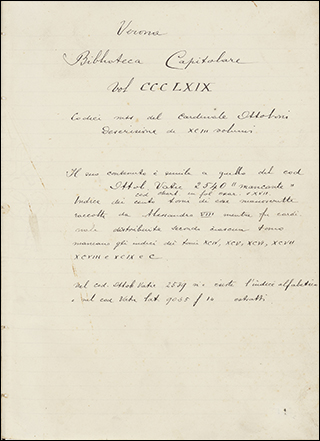 Verona
Biblioteca Capitolare
Vol CCCLXIX
Codici mss. del Cardinale Ottoboni
Descrizione di XCIII volumi
Il suo contenuto è simile a quello del cod
Ottob. Vatic 2540 "mancante"
cod. chart. in fol. saec. XVII.
Indice dei cento tomi di cose manoscritte
raccolti da Alessandro VIII mentre fu cardi
nale distribuite secondo ciascun tomo
mancano gli indici dei tomi XCIV, XCV, XCVI, XCVII
XCVIII e XCIX e C
Nel cod. Ottob Vatic 2529 vi è l'indice alfabetico
e nel cod Vatic lat. 9055 f 14 estratti